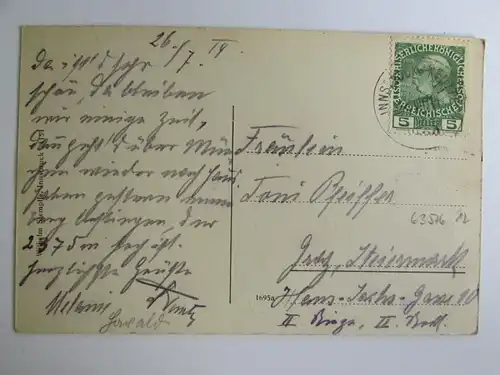 26./7. 14.
Da ist's sehr
schön, da bleiben
wir einige Zeit,
dann geht's über Mün
chen wieder nach Haus
haben gestern
der
2375m hoch ist.
Herzlichste Grüße
Melanie
KAISERLICHE KÖNIGLICHE
ÖSTERREICHISCHE POST
5 HELLER 5
INNS
Fräulein
Toni Pfeiffer
63516
Graz, Steiermark
1695a
Hans-Sachs-Gasse 10
II Stiege, II. Stock